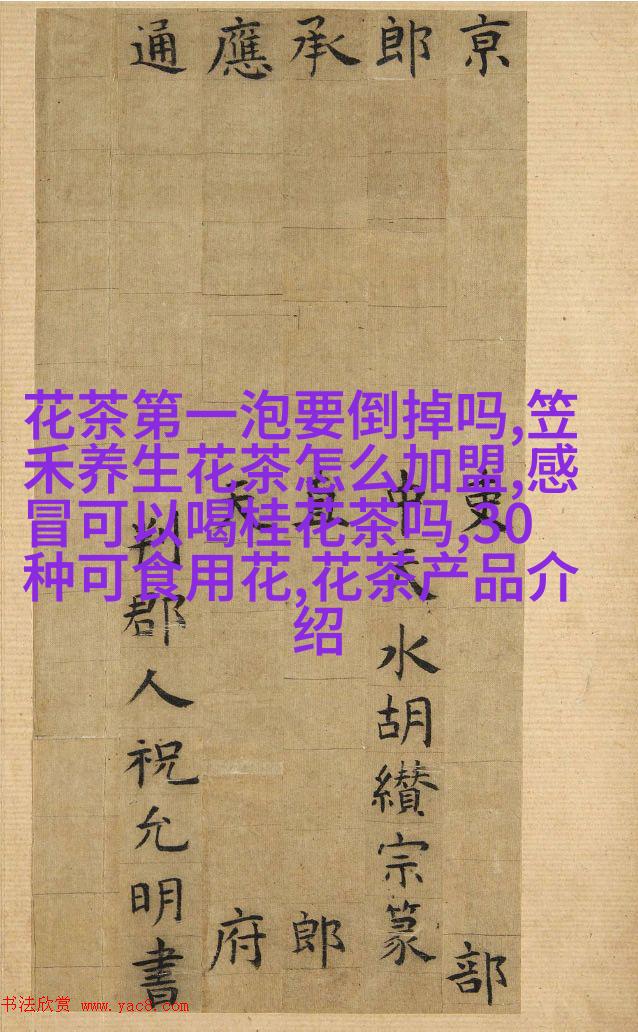 京吏部
郎中天水胡纘宗篆
承直郎
應天府
通判郡人祝允明書
花茶第一泡要倒掉吗,笠
禾养生花茶怎么加盟,感
冒可以喝桂花茶吗,30
种可食用花,花茶产品介
绍
书法欣赏 www.yac8.com